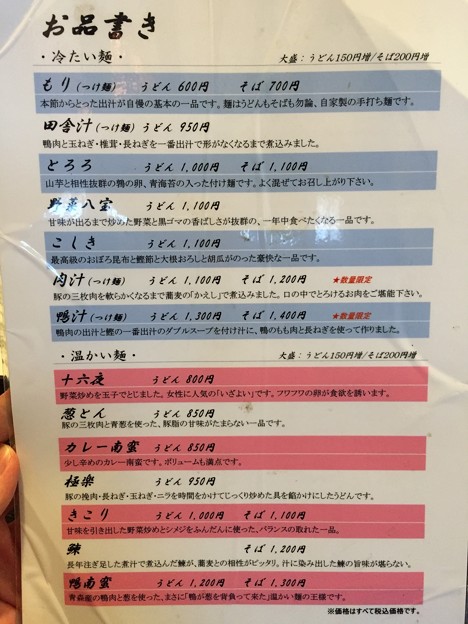 お品書き
・冷たい麺・　大盛：うどん150円増/そば200円増
もり(つけ麺)　うどん 600円　そば 700円
本節からとった出汁が自慢の基本の一品です。麺はうどんもそばも勿論、自家製の手打ち麺です。
田舎汁(つけ麺)　うどん 950円
鴨肉と玉ねぎ・椎茸・長ねぎを一番出汁で形がなくなるまで煮込みました。
とろろ　うどん 1,000円　そば 1,100円
山芋と相性抜群の鶉の卵、青海苔の入った付け麺です。よく混ぜてお召し上がり下さい。
野菜八宝　うどん 1,100円
甘味が出るまで炒めた野菜と黒ゴマの香ばしさが抜群の、一年中食べたくなる一品です。
こしき　うどん 1,100円
最高級のおぼろ昆布と鰹節と大根おろしと胡瓜がのった豪快な一品です。
肉汁(つけ麺)　うどん 1,100円　そば 1,200円　★数量限定
豚の三枚肉を軟らかくなるまで蕎麦の「かえし」で煮込みました。口の中でとろけるお肉をご堪能下さい。
鴨汁(つけ麺)　うどん 1,300円　そば 1,400円　★数量限定
鴨肉の出汁と鰹の一番出汁のダブルスープを付け汁に、鴨のもも肉と長ねぎを使って作りました。
・温かい麺・　大盛：うどん150円増/そば200円増
十六夜　うどん 800円
野菜炒めを玉子でとじました。女性に人気の「いざよい」です。フワフワの卵が食欲を誘います。
葱とん　うどん 850円
豚の三枚肉と青葱を使った、豚脂の甘味がたまらない一品です。
カレー南蛮　うどん 850円
少し辛めのカレー南蛮です。ボリュームも満点です。
極楽　うどん 950円
豚の挽肉・長ねぎ・玉ねぎ・ニラを時間をかけてじっくり炒めた具を餡かけにしたうどんです。
きこり　うどん 1,000円　そば 1,100円
甘味を引き出した野菜炒めとシメジをふんだんに使った、バランスの取れた一品。
鰊　そば 1,200円
長年注ぎ足した煮汁で煮込んだ鰊が、蕎麦との相性がピッタリ。汁に染み出した鰊の旨味が堪らない。
鴨南蛮　うどん 1,200円　そば 1,300円
青森産の鴨肉と葱を使った、まさに「鴨が葱を背負って来た」温かい麺の王様です。
※価格はすべて税込価格です。